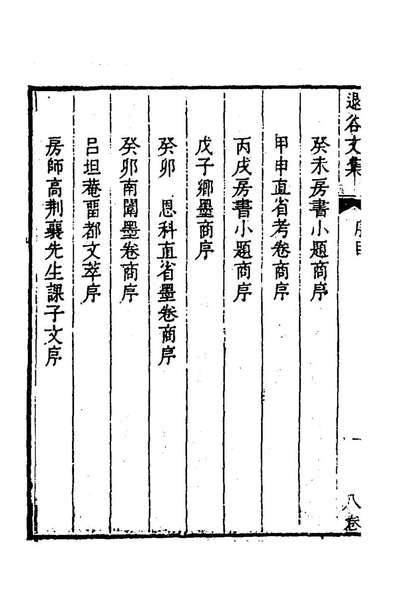 退谷文集 序目 一 八卷
癸未房書小題商序
甲申直省考卷商序
丙戌房書小題商序
戊子鄉墨商序
癸卯 恩科直省墨卷商序
癸卯南闈墨卷商序
呂坦菴畱都文萃序
房師高荆襄先生課子文序